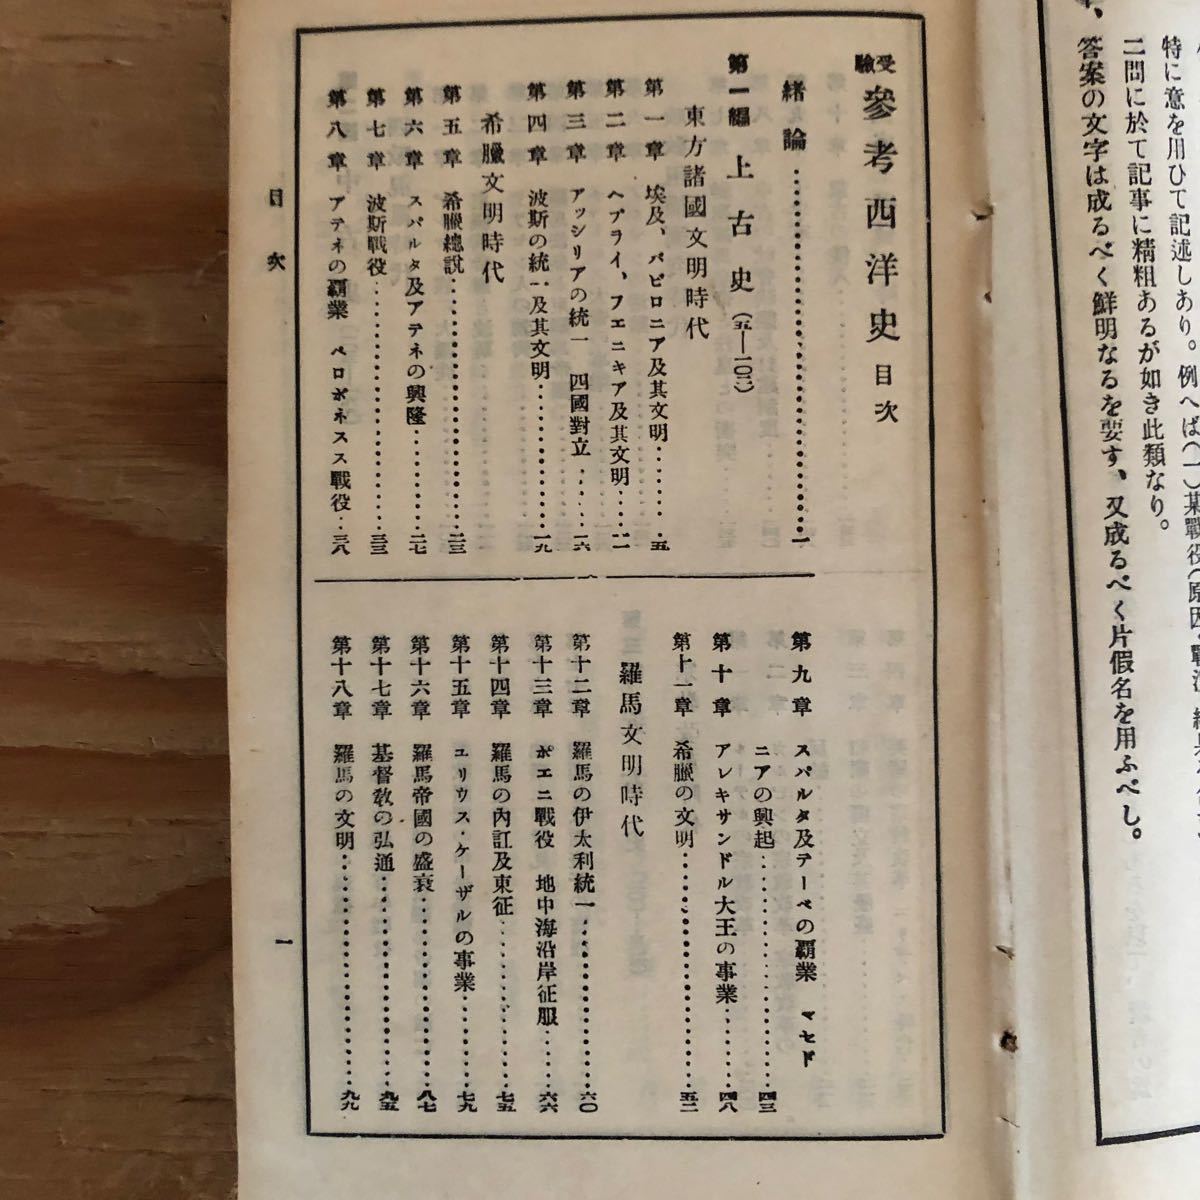 特に意を用ひて記述しあり。例へば(一)某戰役(原因、戰況、
二問に於て記事に精粗あるが如き此類なり。
答案の文字は成るべく鮮明なるを要す、又成るべく片假名を用ふべし。
受驗 參考西洋史目次
緖論……一
第一編 上古史(五―一〇二)
東方諸國文明時代
第一章 埃及、バビロニア及其文明……五
第二章 ヘブライ、フエニキア及其文明……一一
第三章 アッシリアの統一 四國對立……一六
第四章 波斯の統一及其文明……一九
希臘文明時代
第五章 希臘總說……二三
第六章 スパルタ及アテネの興隆……二七
第七章 波斯戰役……三三
第八章 アテネの覇業 ペロポネスス戰役…三八
第九章 スパルタ及テーベの覇業 マセド
ニアの興起……四三
第十章 アレキサンドル大王の事業……四八
第十一章 希臘の文明……五二
羅馬文明時代
第十二章 羅馬の伊太利統一……六〇
第十三章 ポエニ戰役 地中海沿岸征服……六六
第十四章 羅馬の內訌及東征……七五
第十五章 ユリウス・ケーザルの事業……七九
第十六章 羅馬帝國の盛衰……八七
第十七章 基督敎の弘通……九五
第十八章 羅馬の文明……九九
目次
一